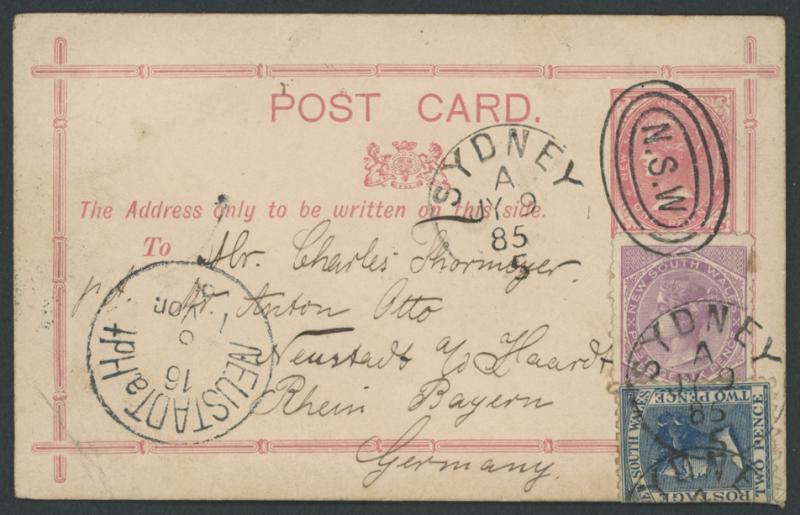 POST CARD.
The Address only to be written on this side.
To Mr. Charles Thormeyer.
Mr. Anton Otto
Neustadt a/ Haardt
Rhein Bayern
Germany.
SYDNEY
A
JY 9
85
5
N.S.W
NEW SOUTH WALES
SYDNEY
A
JY 9
85
5
SOUTH WALES
TWO PENCE
TWO PENCE
POSTAGE
NEUSTADT a Hdt
16